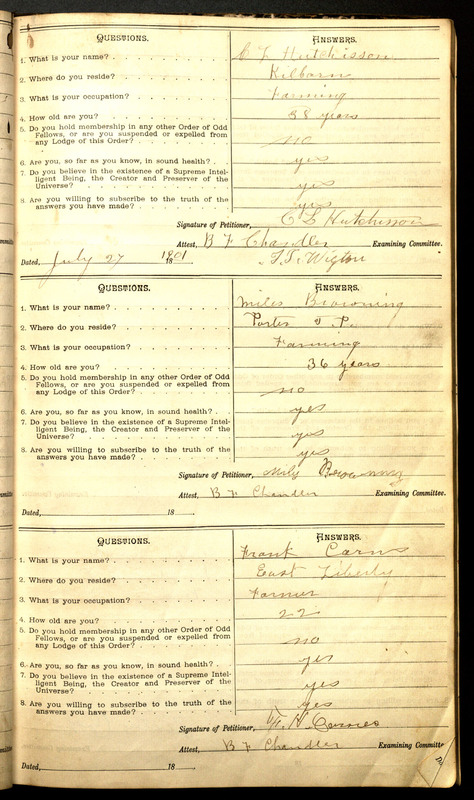 QUESTIONS. ANSWERS.
1. What is your name? C L Hutchisson
2. Where do you reside? Kilborn
3. What is your occupation? Farming
4. How old are you? 38 years
5. Do you hold membership in any other Order of Odd
Fellows, or are you suspended or expelled from
any Lodge of this Order? no
6. Are you, so far as you know, in sound health? yes
7. Do you believe in the existence of a Supreme Intel-
ligent Being, the Creator and Preserver of the
Universe? yes
8. Are you willing to subscribe to the truth of the
answers you have made? yes
Signature of Petitioner, C L Hutchisson
Attest, B F Chandler Examining Committee.
Dated, July 27 1901 18
QUESTIONS. ANSWERS.
1. What is your name? Miles Browning
2. Where do you reside? Porter
3. What is your occupation? Farming
4. How old are you? 36 years
5. Do you hold membership in any other Order of Odd
Fellows, or are you suspended or expelled from
any Lodge of this Order? no
6. Are you, so far as you know, in sound health? yes
7. Do you believe in the existence of a Supreme Intel-
ligent Being, the Creator and Preserver of the
Universe? yes
8. Are you willing to subscribe to the truth of the
answers you have made? yes
Signature of Petitioner, Browning
Attest, B F Chandler Examining Committee.
Dated, 18
QUESTIONS. ANSWERS.
1. What is your name? Frank Carns
2. Where do you reside? East Liberty
3. What is your occupation? Farmer
4. How old are you? 22
5. Do you hold membership in any other Order of Odd
Fellows, or are you suspended or expelled from
any Lodge of this Order? no
6. Are you, so far as you know, in sound health? yes
7. Do you believe in the existence of a Supreme Intel-
ligent Being, the Creator and Preserver of the
Universe? yes
8. Are you willing to subscribe to the truth of the
answers you have made? yes
Signature of Petitioner, Carnes
Attest, B F Chandler Examining Committe
Dated, 18